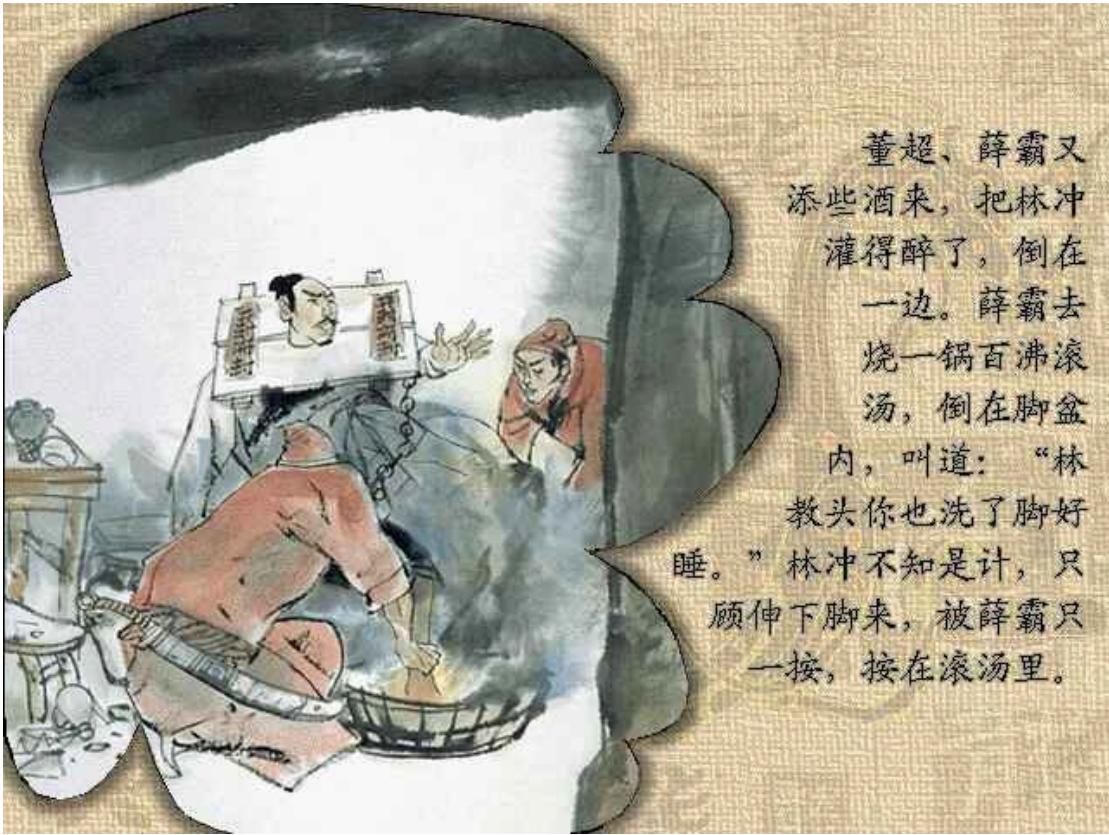 董超、薛霸又
添些酒来，把林冲
灌得醉了，倒在
一边。薛霸去
烧一锅百沸滚
汤，倒在脚盆
内，叫道：“林
教头你也洗了脚好
睡。”林冲不知是计，只
顾伸下脚来，被薛霸只
一按，按在滚汤里。